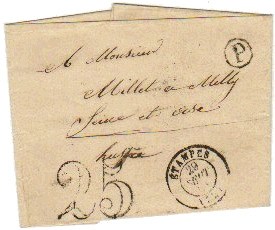 A Monsieur
Millet à Milly
Seine et Oise
P
25
ÉTAMPES
29